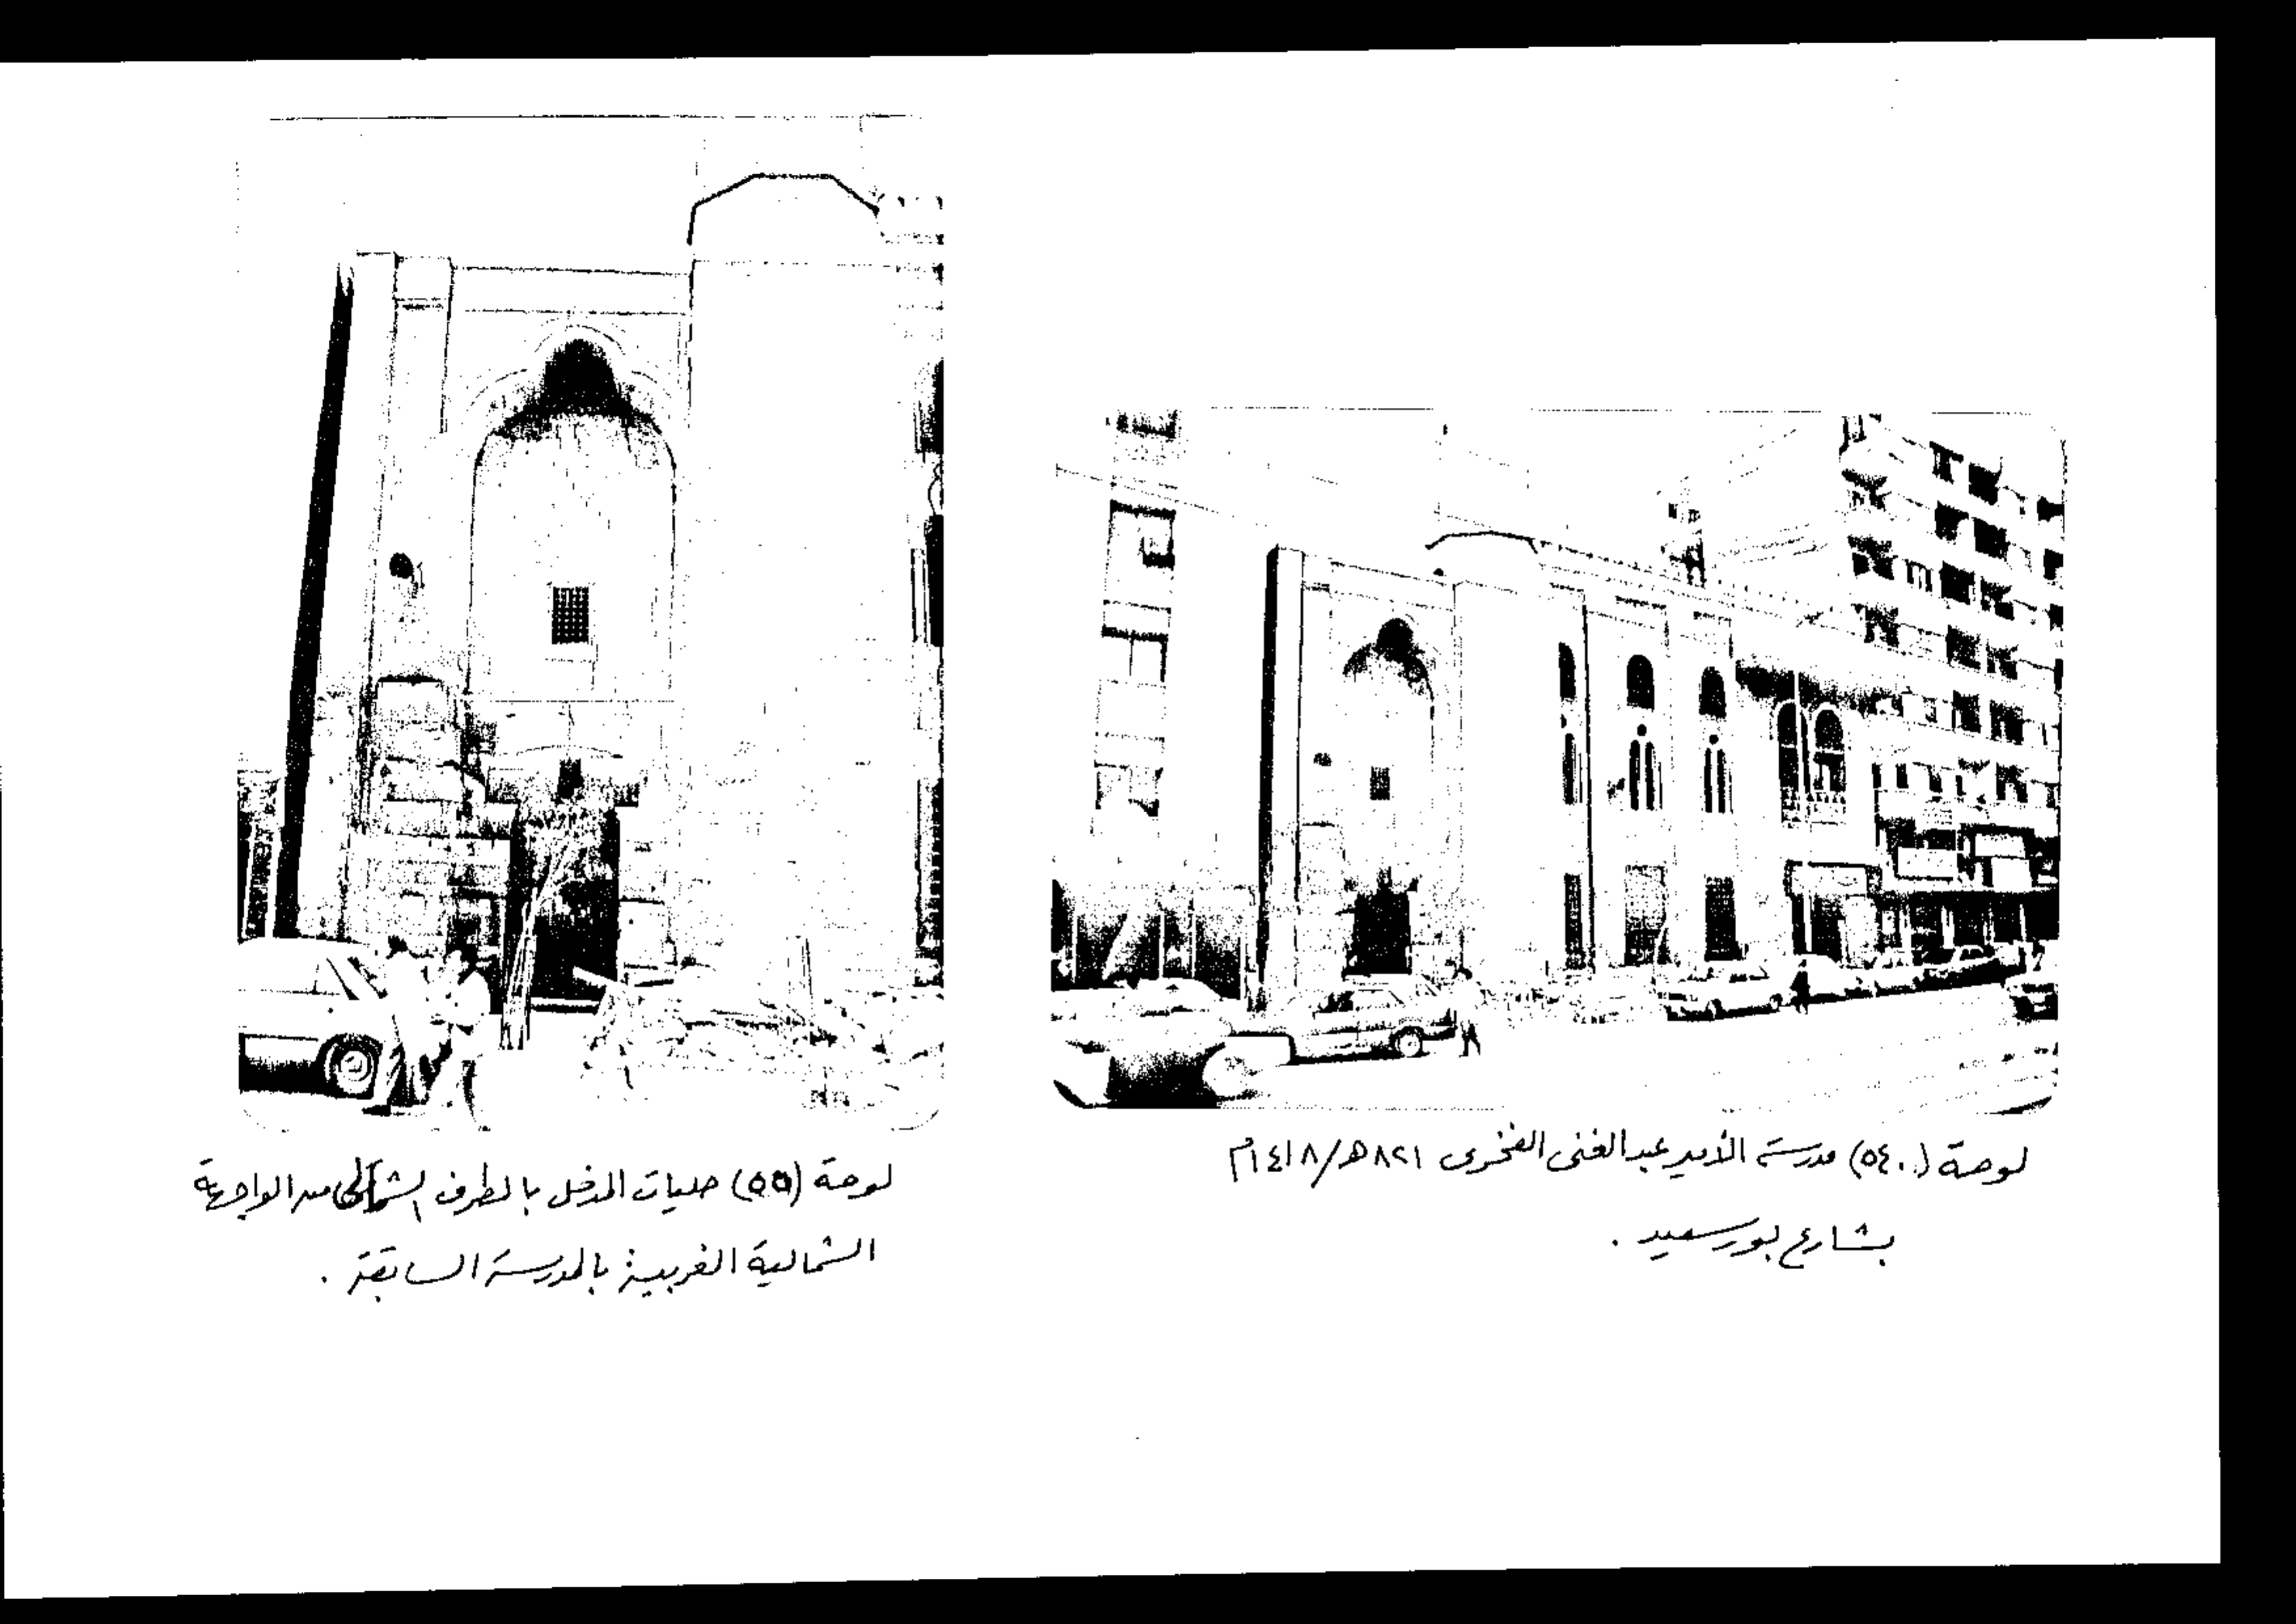 لوحة (٥٤٠) مدرسة الأمير عبد الغنى الفخرى ٨٢١هـ/١٤١٨م
بشارع بورسعيد .
لوحة (٥٥) حليات المدخل بالطرف الشمالى من الواجهة
الشمالية الغربية بالمدرسة السابقة .